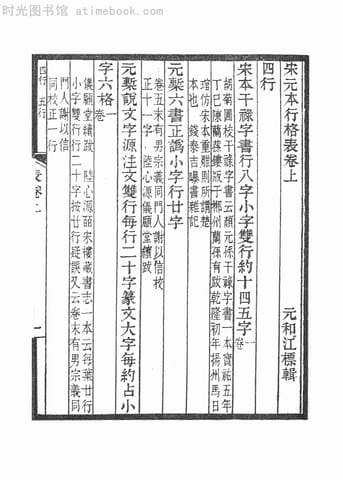 时光图书馆 atimebook.com
宋元本行格表卷上
元和江標輯
四行
宋本干祿字書行八字小字雙行約十四五字卷一
胡菊圃校干祿字書云顏元孫干祿字書一本寶祐五年
丁巳陳蘭蓀鏤版于郴州蘭孫有跋乾隆初年揚州馬日
琯仿宋本重雕則所謂楚
本也 錢泰吉曝書雜記
元槧六書正譌小字行廿字
卷五末有男宗義同門人謝以信校
正十一字 陸心源儀顧堂續跋
元槧說文字源注文雙行每行二十字篆文大字每約占小
字六格一卷
儀顧堂續跋 陸心源皕宋樓藏書志一本云每葉廿行
小字雙行行二十字按廿行疑誤又云卷末有男宗義同
門人謝以信
同校正一行
四行 五行
表卷上
一